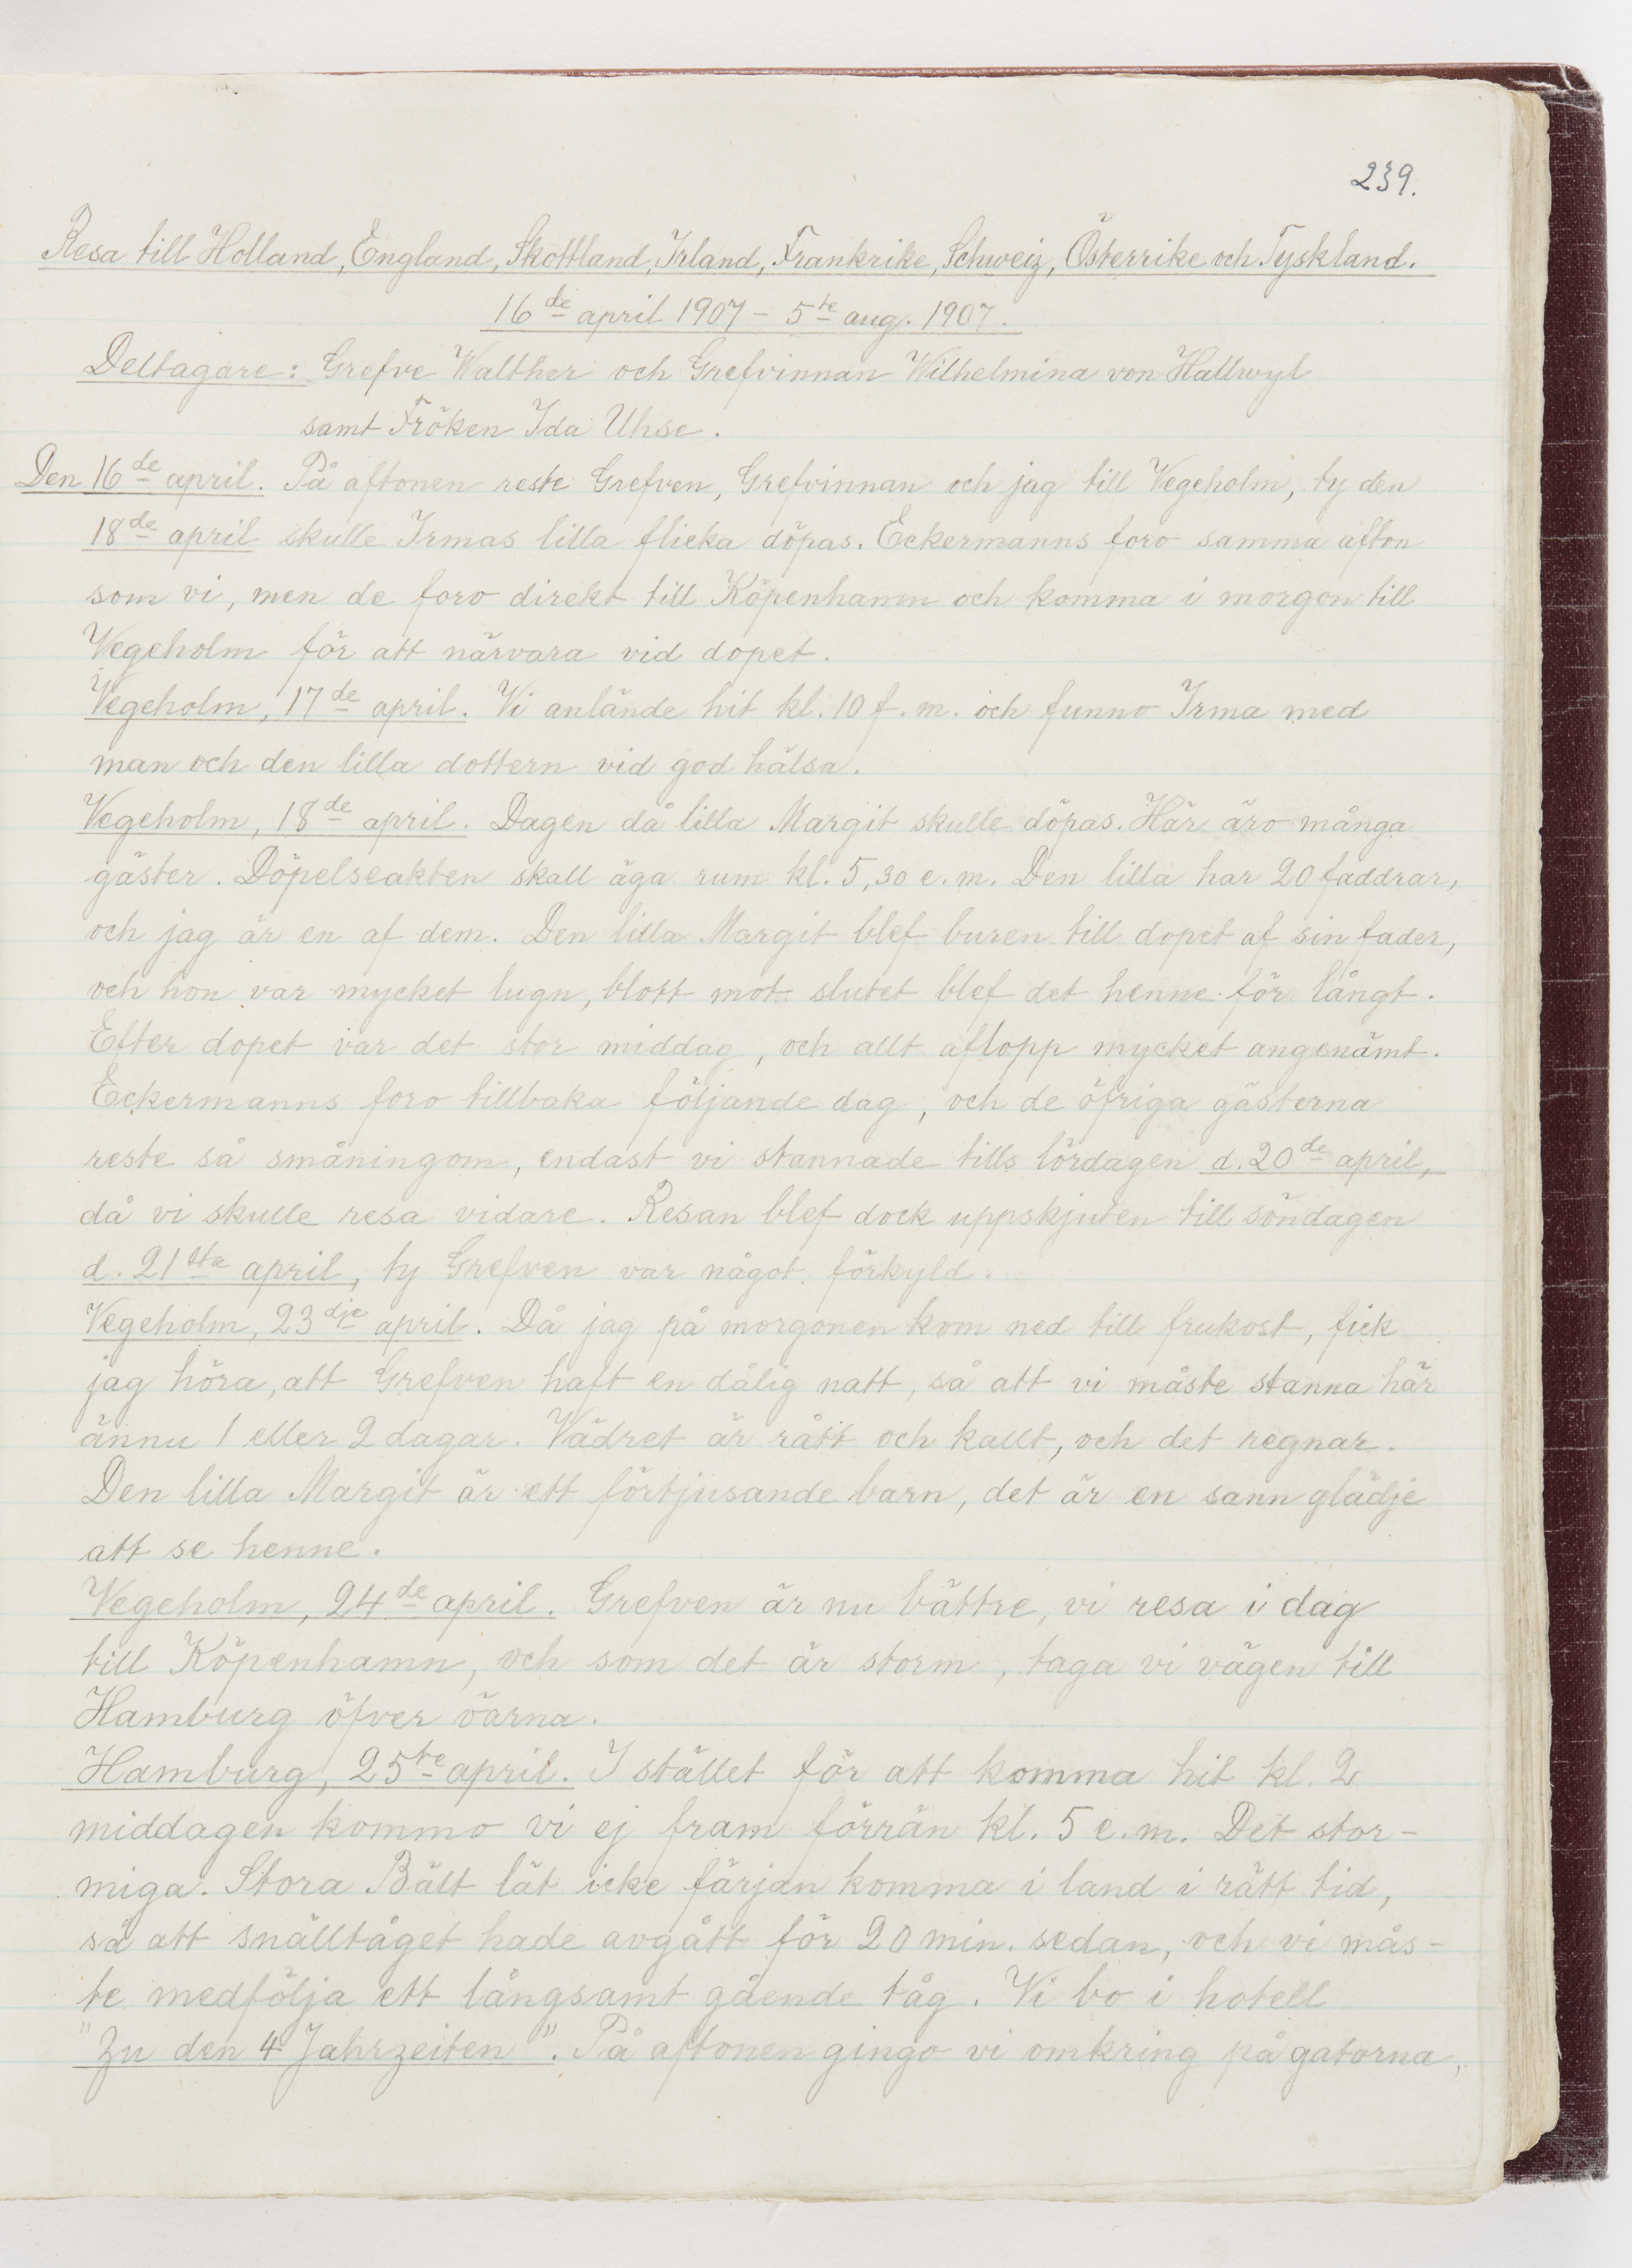 239.
Resa till Holland, England, Skottland, Irland, Frankrike, Schweiz, Österrike och Tyskland.
16de april 1907 – 5te aug. 1907.
Deltagare: Grefve Walther och Grefvinnan Wilhelmina von Hallwyl
samt Fröken Ida Uhse.
Den 16de april. På aftonen reste Grefven, Grefvinnan och jag till Vegeholm, ty den
18de april skulle Irmas lilla flicka döpas. Eckermanns foro samma afton
som vi, men de foro direkt till Köpenhamn och komma i morgon till
Vegeholm för att närvara vid dopet.
Vegeholm, 17de april. Vi anlände hit kl. 10 f. m. och funno Irma med
man och den lilla dottern vid god hälsa.
Vegeholm, 18de april. Dagen då lilla Margit skulle döpas. Här äro många
gäster. Döpelseakten skall äga rum kl. 5,30 e. m. Den lilla har 20 faddrar,
och jag är en af dem. Den lilla Margit blef buren till dopet af sin fader,
och hon var mycket lugn, blott mot slutet blef det henne för långt.
Efter dopet var det stor middag, och allt aflopp mycket angenämt.
Eckermanns foro tillbaka följande dag, och de öfriga gästerna
reste så småningom, endast vi stannade tills lördagen d. 20de april,
då vi skulle resa vidare. Resan blef dock uppskjuten till söndagen
d. 21sta april, ty Grefven var något förkyld.
Vegeholm, 23dje april. Då jag på morgonen kom ned till frukost, fick
jag höra, att Grefven haft en dålig natt, så att vi måste stanna här
ännu 1 eller 2 dagar. Vädret är rått och kallt, och det regnar.
Den lilla Margit är ett förtjusande barn, det är en sann glädje
att se henne.
Vegeholm, 24de april. Grefven är nu bättre, vi resa i dag
till Köpenhamn, och som det är storm, taga vi vägen till
Hamburg öfver öarna.
Hamburg, 25te april. I stället för att komma hit kl. 2
middagen kommo vi ej fram förrän kl. 5 e.m. Det stor-
miga Stora Bält lät icke färjan komma i land i rätt tid,
så att snälltåget hade avgått för 20 min. sedan, och vi mås-
te medfölja ett långsamt gående tåg. Vi bo i hotell
"Zu den 4 Jahrzeiten". På aftonen gingo vi omkring på gatorna,